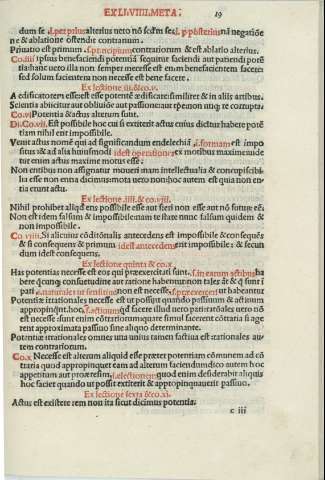 EX LI. VIIII. META. 19
dum se .i. per prius alterius vero nō scd'm se &.i. p posterius nā negatiōe
ne & ablatione ostendit contrarium.
Priuatio est primum .i. principium contrariorum & est ablatio alterius.
Co. iiii Ipsius benefaciendi potentiā sequitur faciendi aut patiendi poten
tia hanc vero illa non semper necesse est enim benefacientem facere
sed solum facientem non necesse est bene facere.
Ex lectione .iii. & co. v.
A ędificatorem esse est esse potentē ædificare similiter & in aliis artibus.
Scientia abiicitur aut obliuiōe aut passione aut tp̄e non utiq; re corrupta
Co. vi Potentia & actus alterum sunt.
Di. Co. vii. Est possibile hoc cui si exiterit actus cuius dicitur habere poten
tiam nihil erit impossibile.
Venit actus nomē qui ad significandum endelechiā .i. formam est impo
situs & ad alia huiusmodi idest operationes ex moribus maxime uide
tur enim actus maxime motus esse:
Non entibus non assignatur moueri nam intellectualia & concupiscibi
lia esse non enria dicimus mota vero non hoc autem est quia non en
tia erunt actu.
Ex lectione .iiii. & co. viii.
Nihil prohibet aliqd ens possibile esse aut fieri non esse aut nō future eē.
Non est idem falsum & impossibile nam te stare nunc falsum quidem &
non impossibile.
Co viiii. Si alicuius cōditōnalis antecedens est impossibile & conseqn̄s
& si consequens & primum idest antecedens erit impossibile: & secun
dum idest consequens.
Ex lectione quinta & co x
Has potentias necesse est eos qui præexercitati sunt .i. in earum actibus ha
bere qcunq; consuetudine aut ratione habentur non tales āt & q̄ sunt i
pati .s. naturales ut sensitiuę non est necesse .s. præexerceri ut habeantur
Potentiæ irrationales necesse est ut possunt quando passiuum & actiuum
appropinqnt hoc, .i. actiuum qd facere illud pati rationales uero nō
est necesse sunt enim cōtrariorum quare simul facerent cōtraria si age
rent approximata passiuo sine aliquo determinante.
Potentiæ irrationales omnes una unius tamen factiua est rationales au
tem contrariorum.
Co. x Necesse est alterum aliquid esse præter potentiam cōmunem ad cō
traria quod appropinquet eam ad alterum faciendum dico autem hoc
appetitum aut proæresim, .i. electionem quod enim desiderabit aliquis
hoc faciet quando ut possit extiterit & appropinquauerit passiuo.
Ex lectione sexta & co. xi.
Actus est existere rem non ita sicut dicimus potentia.
c iii